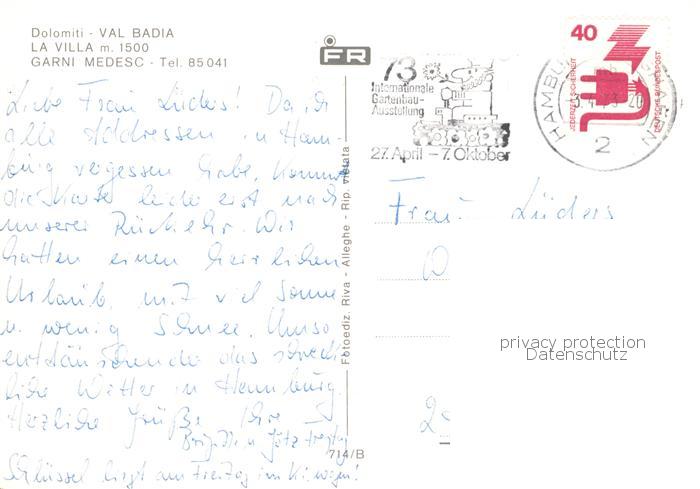 Dolomiti - VAL BADIA
LA VILLA m. 1500
GARNI MEDESC - Tel. 85041
FR
Liebe Frau Lüders! Da ich
alle Addressen in Ham-
burg vergessen habe, kommt
die Karte leider erst nach
unserer Rückkehr. Wir
hatten einen herrlichen
Urlaub mit viel Sonne
u. wenig Schnee. Umso
enttäuschender das schreck
liche Wetter in Hamburg.
Herzliche Grüße Ihre
Götz
Schlüssel liegt am Freitag im
714/B
Fotoediz. Riva - Alleghe - Rip. vietata
73
Internationale
Gartenbau-
Ausstellung
27. April – 7. Oktober
HAMBU
2
40
JEDERZEIT SICHERHEIT
DEUTSCHE BUNDESPOST
Frau Lüders
privacy protection
Datenschutz